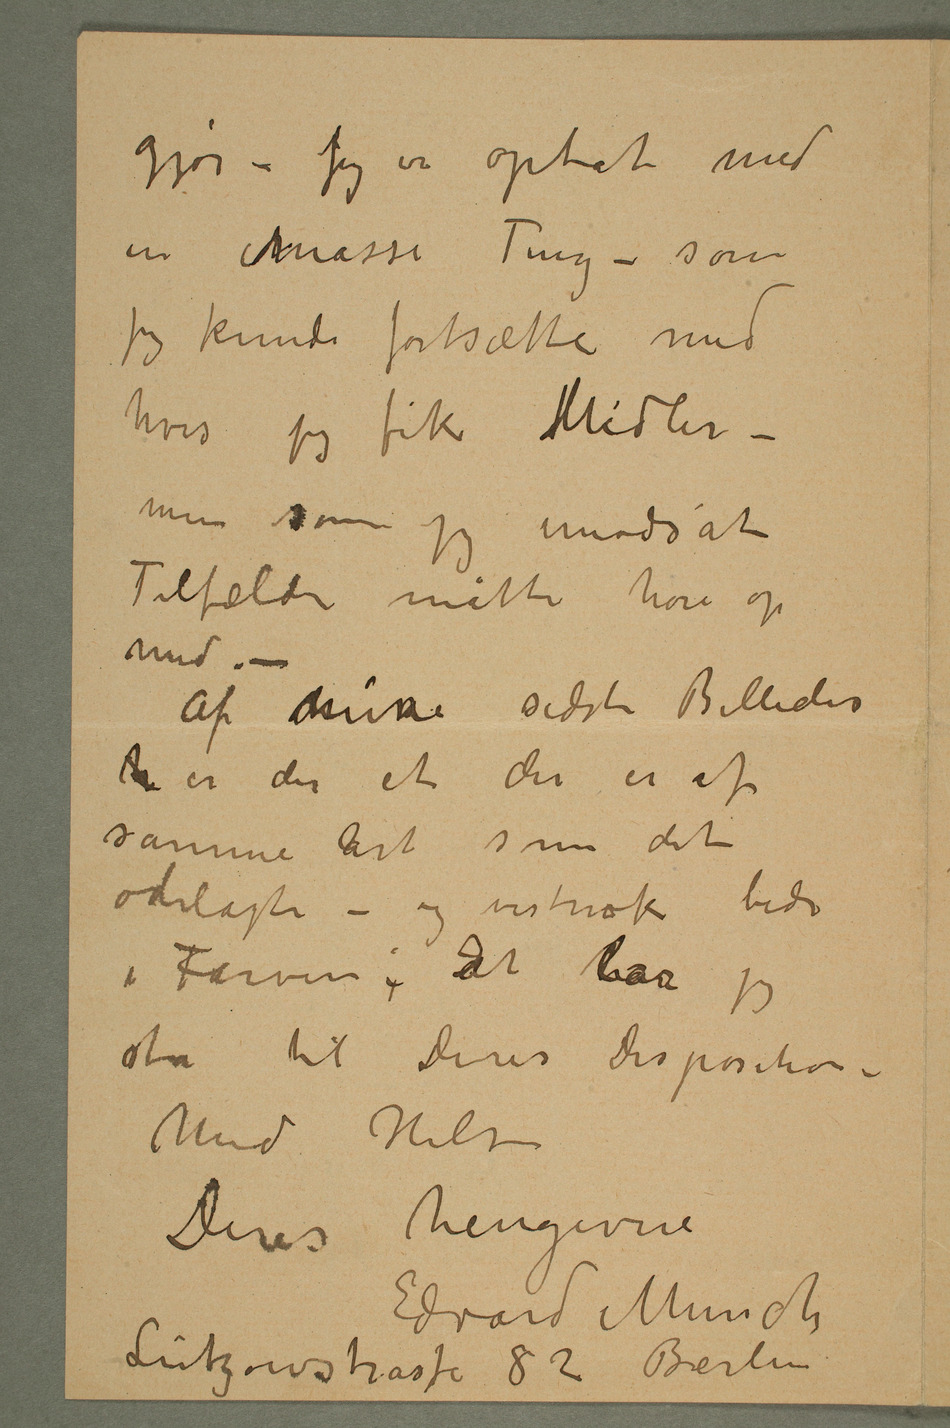 gjør – jeg er optat med
en Masse Ting – som
jeg kunde fortsætte med
hvis jeg fik Midler –
men som jeg imodsat
Tilfælde måtte høre op
med. –
Af mine sidste Billeder
er der et der er af
samme Art som det
ødelagte – og vistnok bedre
i Farven; det lar jeg
stå til Deres Disposition –
Med Hilsen
Deres hengivne
Edvard Munch
Lützowstrasse 82 Berlin